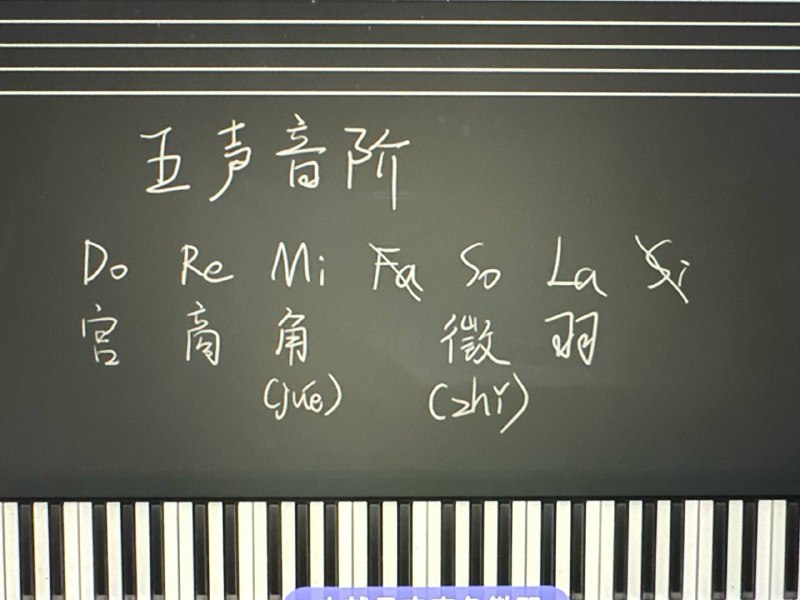 五声音阶
Do Re Mi Fa So La Si
宫 商 角 徵 羽
(jué) (zhǐ)